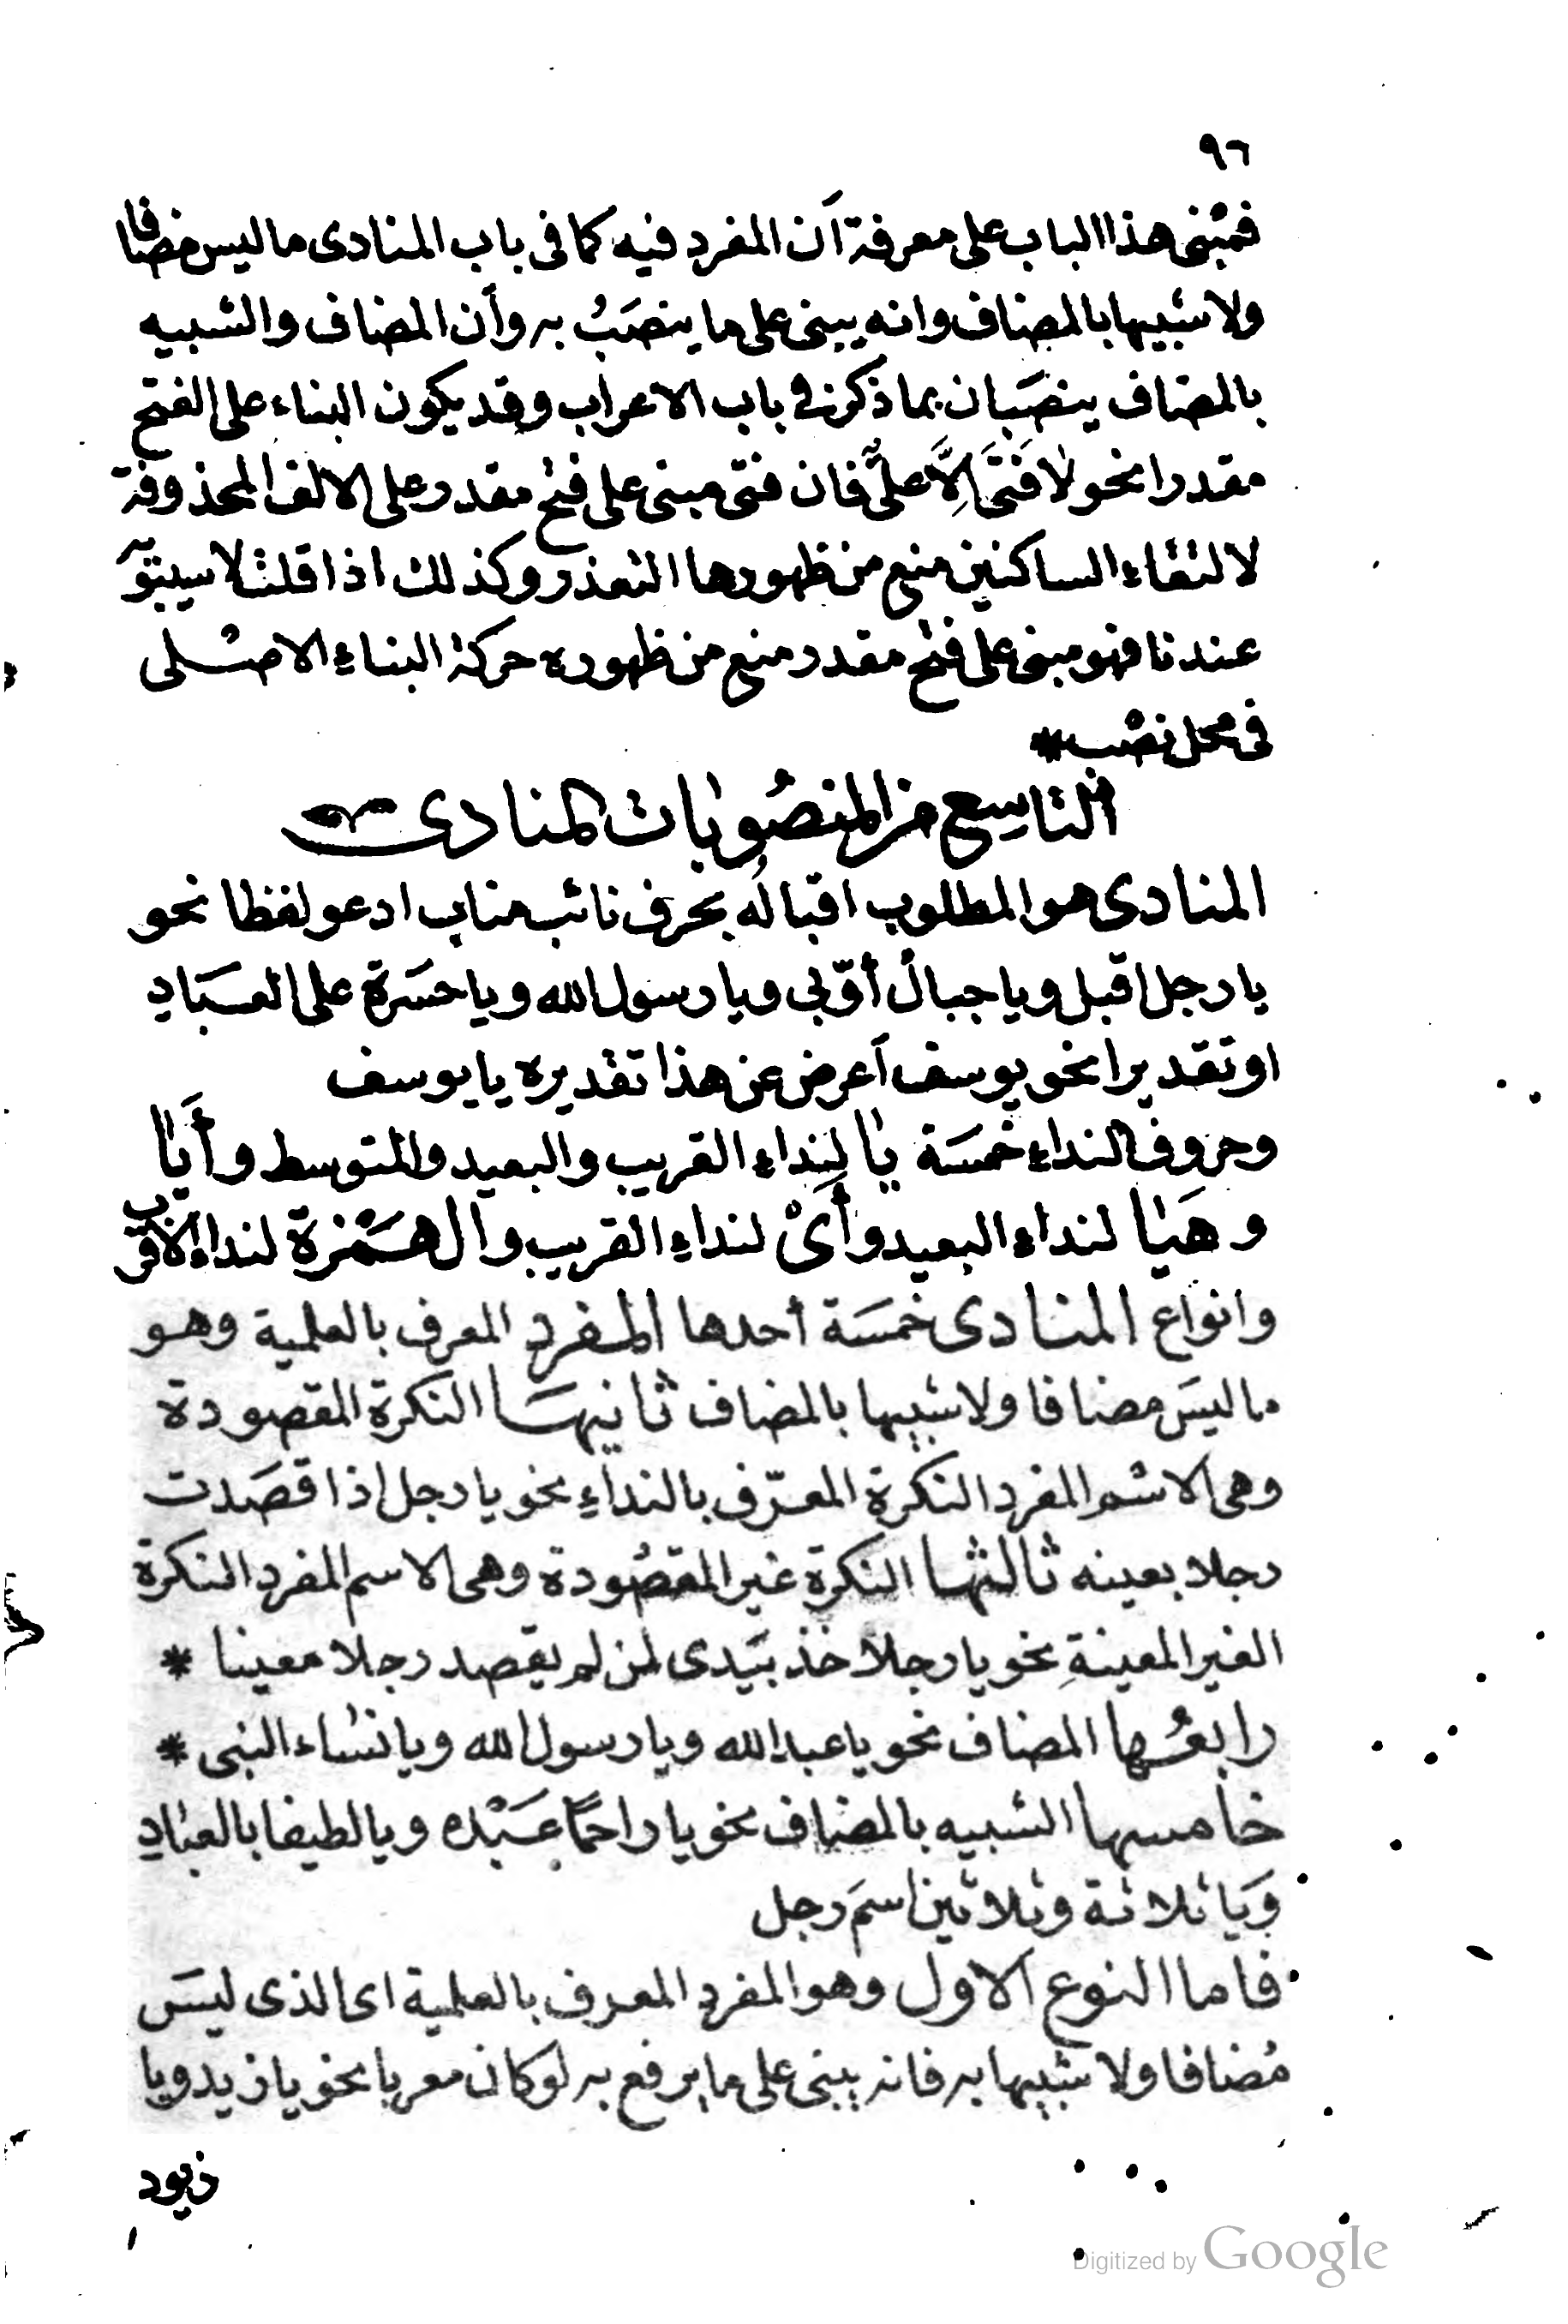 ٩٦
فمبْنى هذا الباب على معرفة أن المفرد فيه كما فى باب المنادى ما ليس مضافا
ولا شبيها بالمضاف وانه يبنى على ما ينصَبُ به وأن المضاف والشبيه
بالمضاف ينصَبان بما ذكر فى باب الاعراب وقد يكون البناء على الفتح
مقدرا نحو لا فَتَى اِلاَّ علىٌّ فان فتى مبنى على فتح مقدر على الالف المحذوفة
لالتقاء الساكنين منع من ظهورها التعذر وكذلك اذا قلت لا سيبَوَيْه
عندنا فهو مبنى على فتح مقدر منع من ظهوره حركة البناء الاصْلى
فى محل نصْب *
التاسِع من المنصُوبات المنادى
المنادى هو المطلوب اقبالُه بحرف نائب مناب ادعو لفظا نحو
يا رجل اقبل ويا جبالُ أوّبى ويا رسول الله ويا حسَرة على العسَباد
او تقديرا نحو يوسف أعرض عن هذا تقديره يا يوسف
وحروف النداء خمسَة يا لِنداء القريب والبعيد والمتوسط وأَيَا
وهَيَا لنداء البعيد وأَىْ لنداءِ القريب والهَمْزة لنداء الاقرب
وانواع المنادى خمسَة أحدها المفرد المعرف بالعلمية وهو
ما ليسَ مضافا ولا شبيها بالمضاف ثانيهَا النكرة المقصودة
وهى الاسْم المفرد النكرة المعرّف بالنداءِ نحو يا رجل اذا قصَدت
رجلا بعينه ثالثها النكرة غير المقصُودة وهى الاسم المفرد النكرة
الغير المعينةِ نحو يا رجلا خذ بيَدى لمن لم يقصد رجلا معينا *
رابعُها المضاف نحو يا عبد الله ويا رسول الله ويا نساء النبى *
خامسها الشبيه بالمضاف نحو يا راحمًا عَبْده ويا لطيفا بالعباد
وَيَا ثلاثة وثلاثين اسمَ رجل
فاما النوع الاول وهو المفرد المعرف بالعلمية اى الذى ليسَ
مُضافا ولا شبيها به فانه يبنى على ما يرفع به لو كان معربا نحو يا زيد ويا
زيود
Digitized by Google